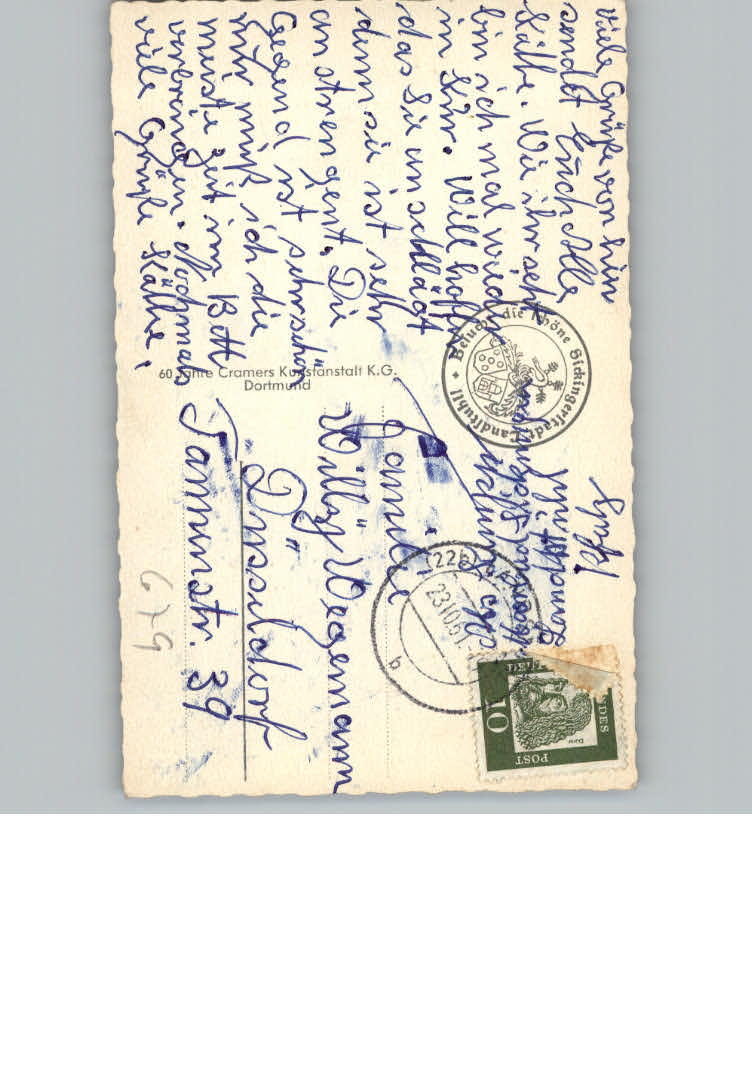 viele Grüße von hier
sendet Euch Alle
Käthe. Wie ihr seht
bin ich mal wieder
in Kur. Will hoffe
das Sie anschlägt
denn sie ist sehr
anstrengent. Die
Gegend ist sehr schön
nur muß ich die
meiste Zeit im Bett
verbringen. Nochmals
viele Grüße Käthe.
60 Jahre Cramers Kunstanstalt K.G.
Dortmund
Besucht die schöne Sickingerstadt Landstuhl
(22b)
23.10.61
b
DEUTSCHE BUNDESPOST
10
Dürer
Familie
Willy Wegemann
Düsseldorf
Taunusstr. 39
679